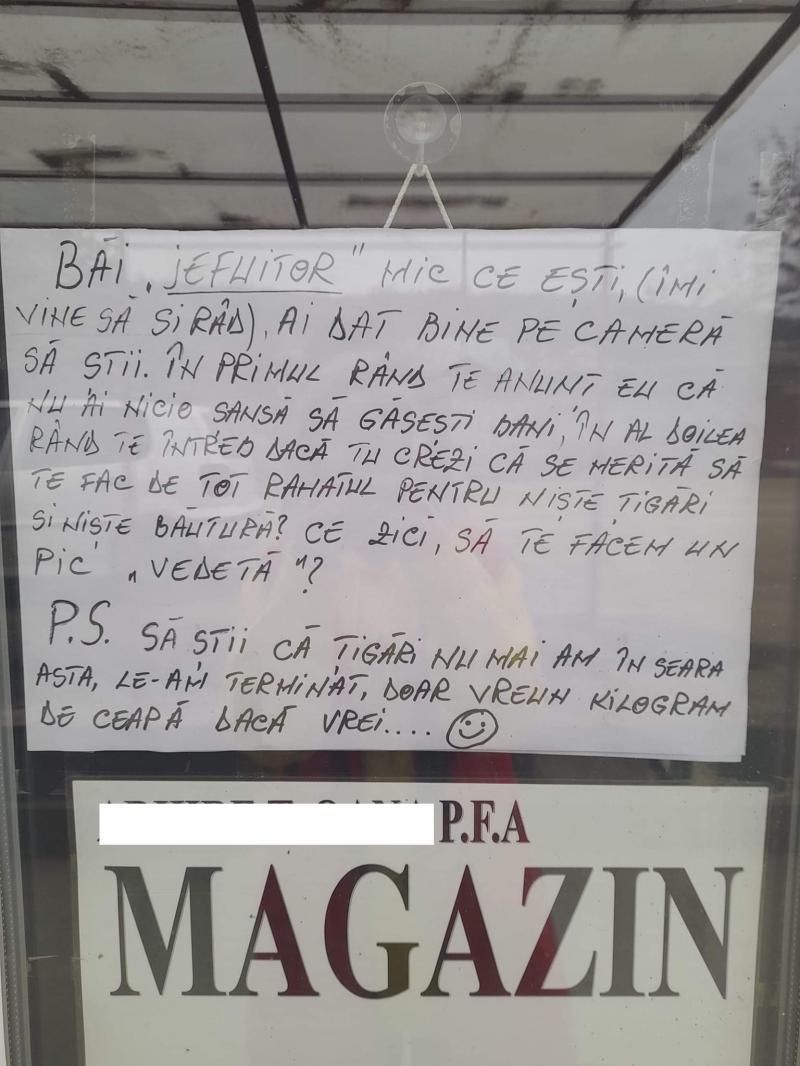 BĂI „JEFUITOR" MIC CE EȘTI, (ÎMI
VINE SĂ SI RÂD), AI DAT BINE PE CAMERĂ
SĂ STII. ÎN PRIMUL RÂND TE ANUNT EU CĂ
NU AI NICIO SANSĂ SĂ GĂSESTI BANI, ÎN AL DOILEA
RÂND TE ÎNTREB DACĂ TU CREZI CĂ SE MERITĂ SĂ
TE FAC DE TOT RAHATUL PENTRU NIȘTE ȚIGĂRI
SI NIȘTE BĂUTURĂ? CE ZICI, SĂ TE FACEM UN
PIC „VEDETĂ"?
P.S. SĂ STII CĂ ȚIGĂRI NU MAI AM ÎN SEARA
ASTA, LE-AM TERMINAT, DOAR VREUN KILOGRAM
DE CEAPĂ DACĂ VREI....
P.F.A
MAGAZIN